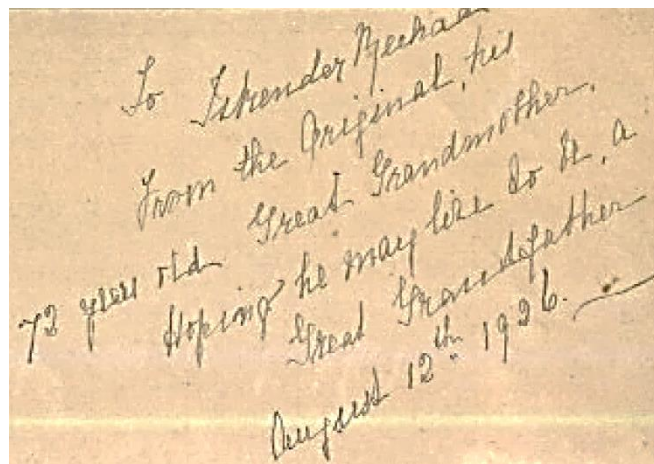 To Iskender
From the Original, his
72 years old Great Grandmother.
Hoping he may live to be, a
Great Grandfather
August 12th 1926.